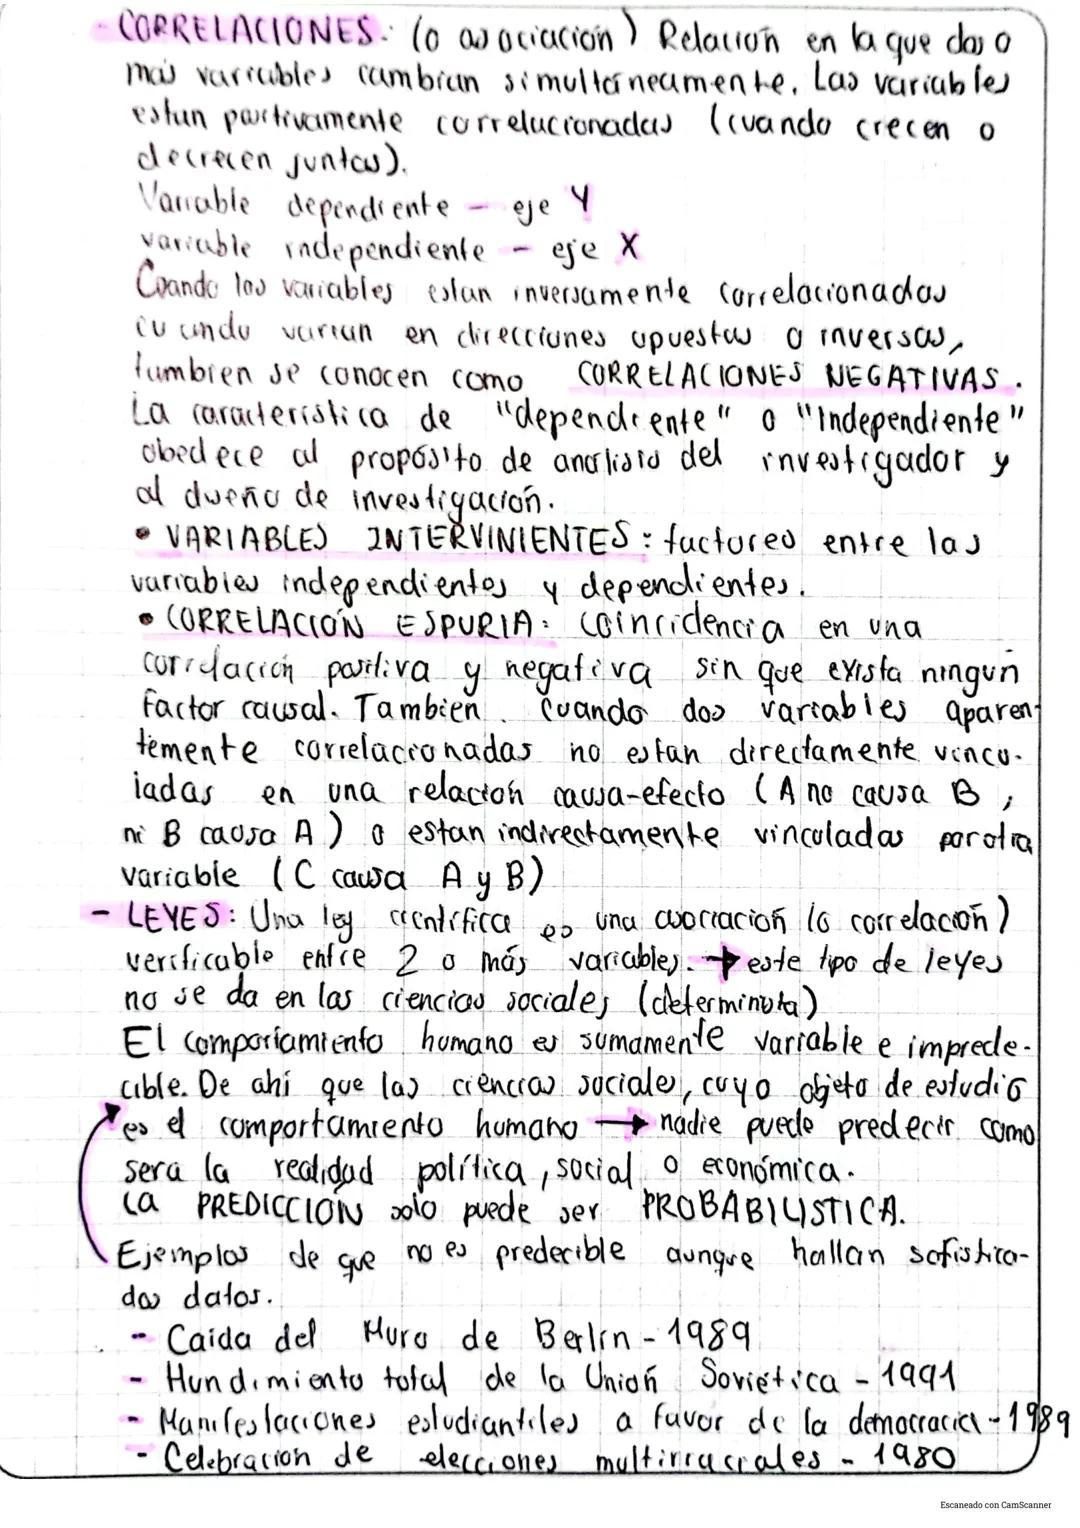 - CORRELACIONES: (o asociación) Relación en la que dos o
mas variables cambian simultáneamente. Las variables
estan positivamente correlacionadas (cuando crecen o
decrecen juntas).
Variable dependiente - eje Y
variable independiente - eje X
Cuando las variables estan inversamente correlacionadas
cuando varian en direcciones opuestas o inversas,
tambien se conocen como CORRELACIONES NEGATIVAS.
La caracteristica de "dependiente" o "Independiente"
obedece al propósito de analisis del investigador y
al diseño de investigación.
• VARIABLES INTERVINIENTES: factores entre las
variables independientes y dependientes.
• CORRELACIÓN ESPURIA: Coincidencia en una
correlación positiva y negativa sin que exista ningun
factor causal. Tambien. Cuando dos variables aparen-
temente correlacionadas no estan directamente vincu-
ladas en una relación causa-efecto (A no causa B,
ni B causa A) o estan indirectamente vinculadas por otra
variable (C causa A y B)
- LEYES: Una ley cientifica es una asociación (o correlación)
verificable entre 2 o más variables. → este tipo de leyes
no se da en las ciencias sociales (determinista)
El comportamiento humano es sumamente variable e imprede-
cible. De ahí que las ciencias sociales, cuyo objeto de estudio
es el comportamiento humano → nadie puede predecir como
sera la realidad política, social o económica.
La PREDICCIÓN solo puede ser PROBABILISTICA.
Ejemplos de que no es predecible aunque hallan sofistica-
dos datos.
- Caida del Muro de Berlin - 1989
- Hundimiento total de la Unión Sovietica - 1991
- Manifestaciones estudiantiles a favor de la democracia - 1989
- Celebracion de elecciones multirraciales - 1980
Escaneado con CamScanner